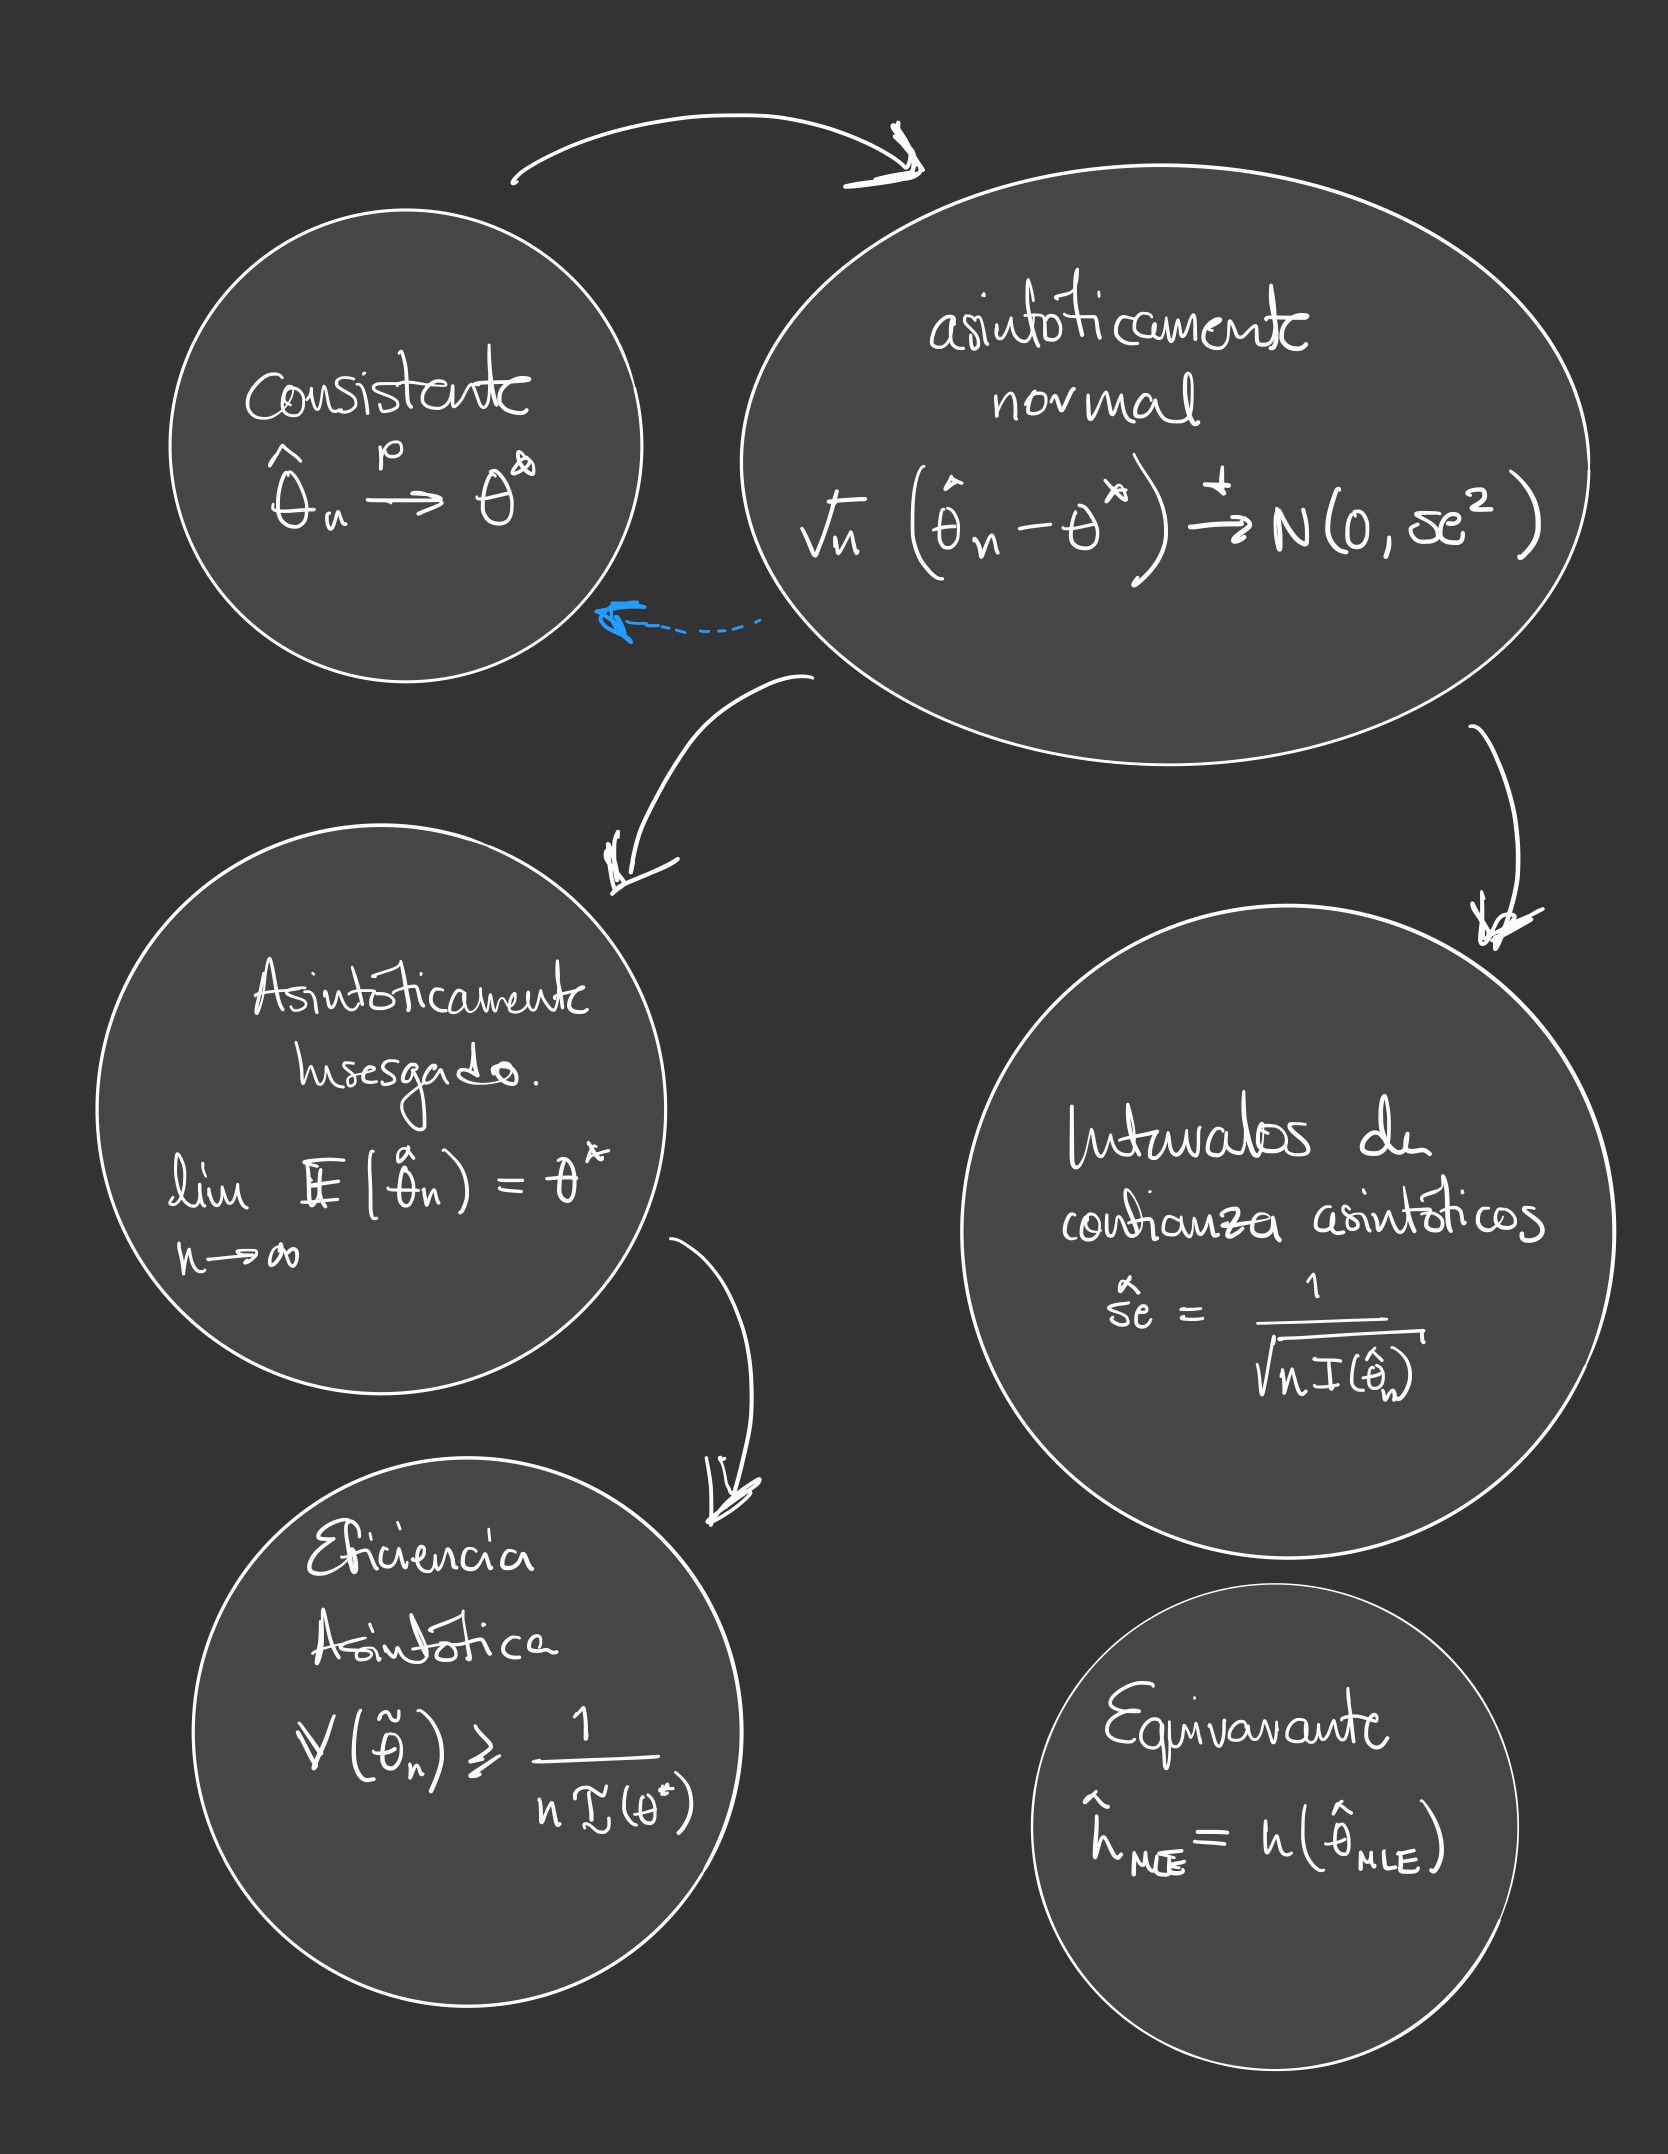 Consistente
θ̂ₙ →ᵖ θ*
asintóticamente
normal
√n (θ̂ₙ − θ*) →ᵈ N(0, se²)
Asintóticamente
Insesgado.
lim E(θ̂ₙ) = θ*
n→∞
Intervalos de
confianza asintóticos
ŝe = 1 / √(n I(θ̂ₙ))
Eficiencia
Asintótica
V(θ̃ₙ) ≥ 1 / (n I(θ*))
Equivariante
ĥ_MLE = h(θ̂_MLE)